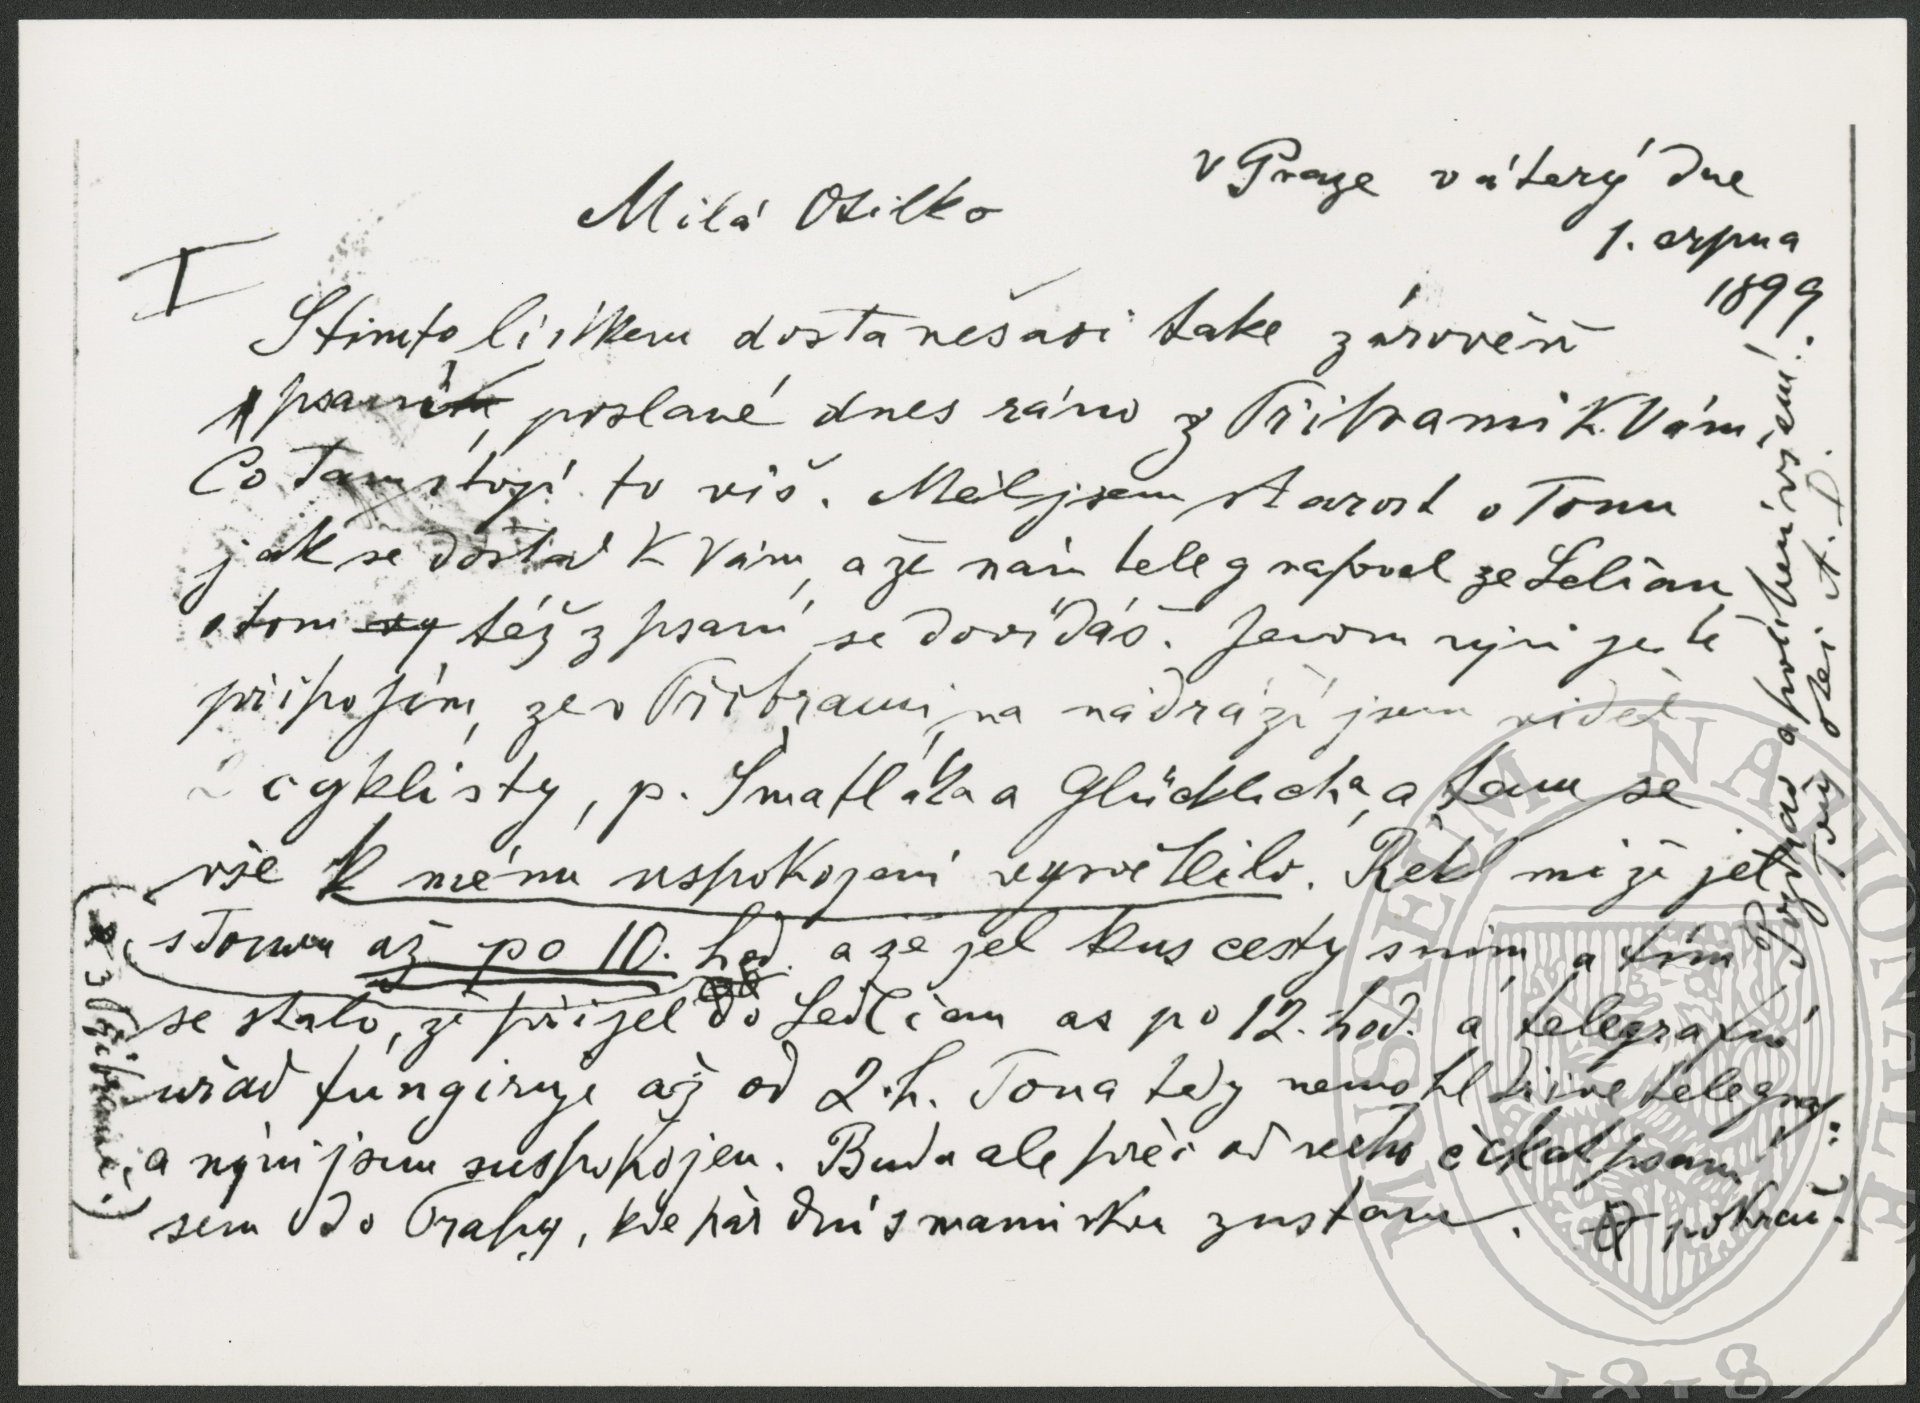 v Praze v úterý dne
1. srpna
1899
Milá Otilko
I
S tímto lístkem dostaneš asi take zároveň
psaní poslané dnes ráno z Přibrami k Vám
Co tam stojí to viš. Měl jsem starost o Tonu
jak se dostal k Vám, a že nám telegrafoval ze Sedlčan
o tom též z psaní se dovídáš. Jenom nyní ještě
připojím, že v Přibrami na nádraží jsem viděl
2 cyklisty, p. Šmatláka a Glücklicha, a tam se
vše k mému uspokojení vysvětlilo. Řekl mi že jel
s Tonou až po 10. hod. a že jel kus cesty s ním, a tím
se stalo, že přijel do Sedlčan as po 12. hod. a telegrafní
uřad fungiruje až od 2. h. Tona tedy nemohl dříve telegraf.
a nyní jsem suspokojen. Budu ale přeci od něho čekat psaní
sem do Prahy, kde pár dní s maminkou zustanu. pokrač.
(z Přibrami.)
Pozdrav a políbení všem!
Tvůj otec A. D.
MUSAEUM NATIONALE
1818